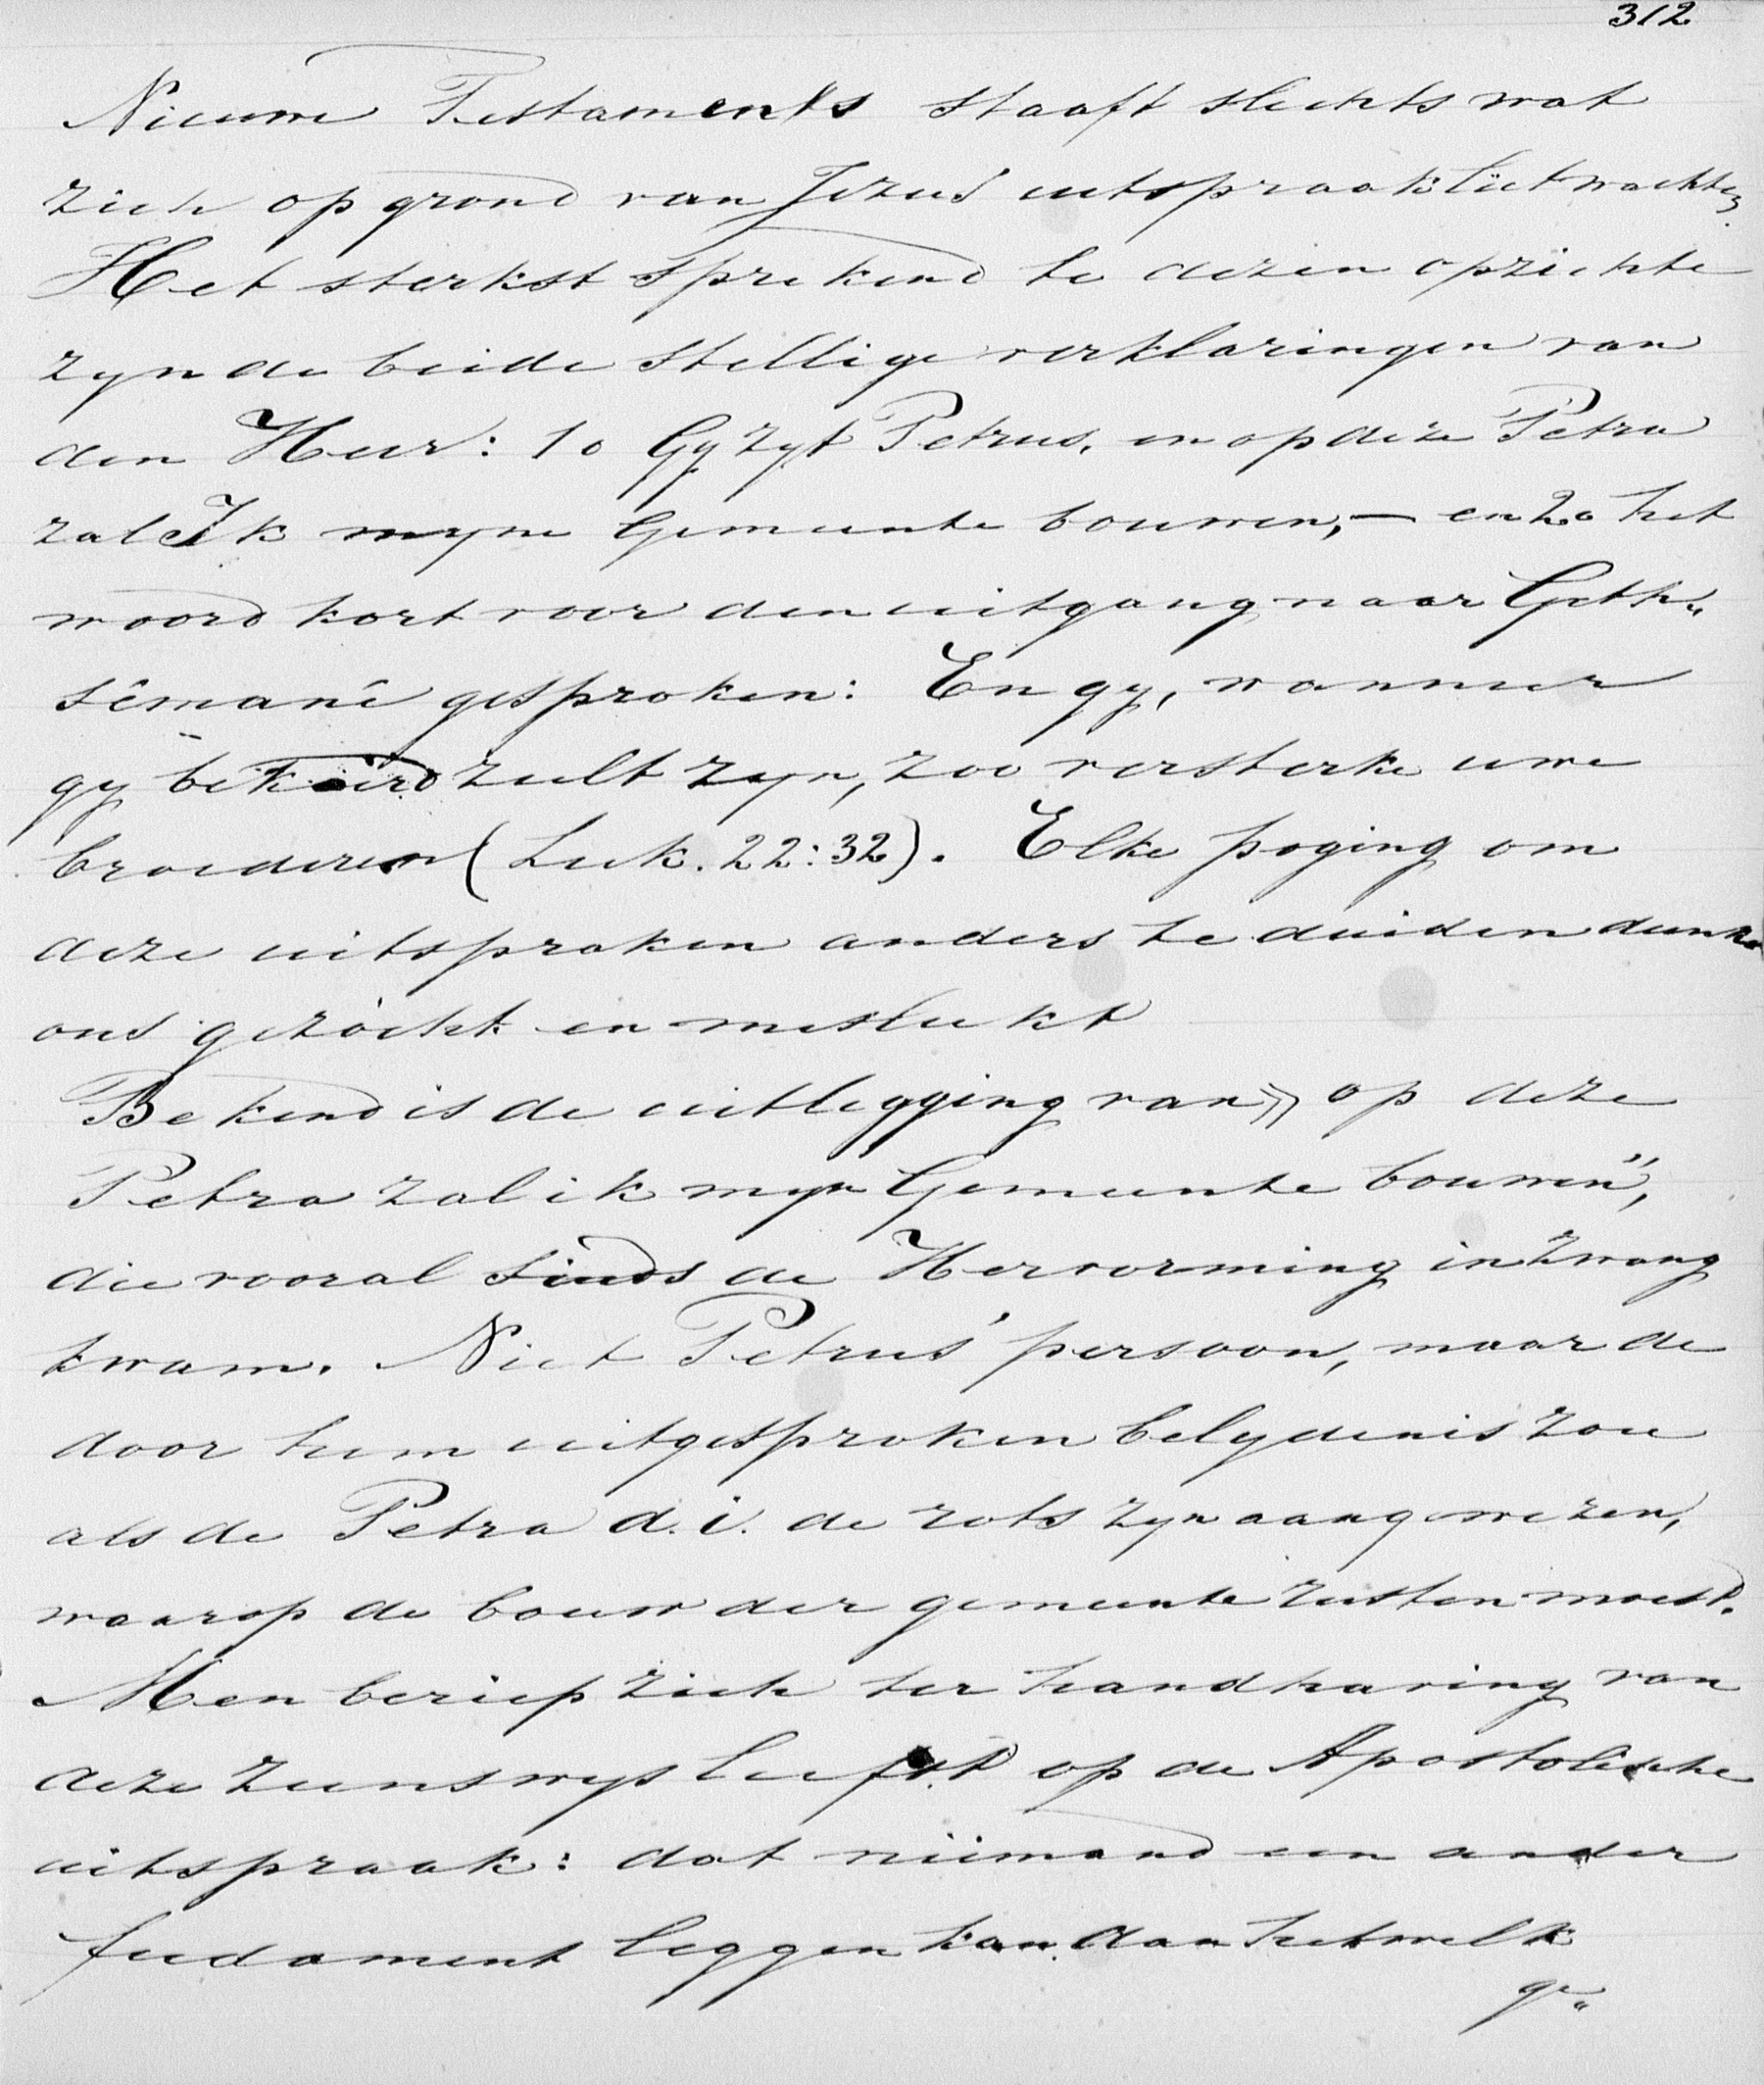 312
Nieuwe Testaments staaft slechts wat
zich op grond van Jezus' uitspraak liet wachten.
Het sterkst sprekend te dezen opzichte
zyn de beide stellige verklaringen van
den Heer: 1o Gy zyt Petrus, en op deze Petra
zal Ik myne Gemeente bouwen, — en 2o het
woord kort voor den uitgang naar Geth„
sémané gesproken: En gy, wanneer
gy bekeerd zult zyn, zoo versterke uwe
broederen (Luk. 22:32). Elke poging om
deze uitspraken anders te duiden dunkt
ons gezocht en mislukt
Bekend is de uitlegging van » op deze
Petra zal ik myn Gemeente bouwen",
die vooral sinds de Hervorming in zwang
kwam. Niet Petrus' persoon, maar de
door hem uitgesproken belydenis zou
als de Petra d.i. de rots zyn aangewezen,
waarop de bouw der gemeente rusten moest.
Men beriep zich ter handhaving van
deze zienswys liefst op de Apostolische
uitspraak: dat niemand een ander
fudament leggen kan dan hetwelk
ge„